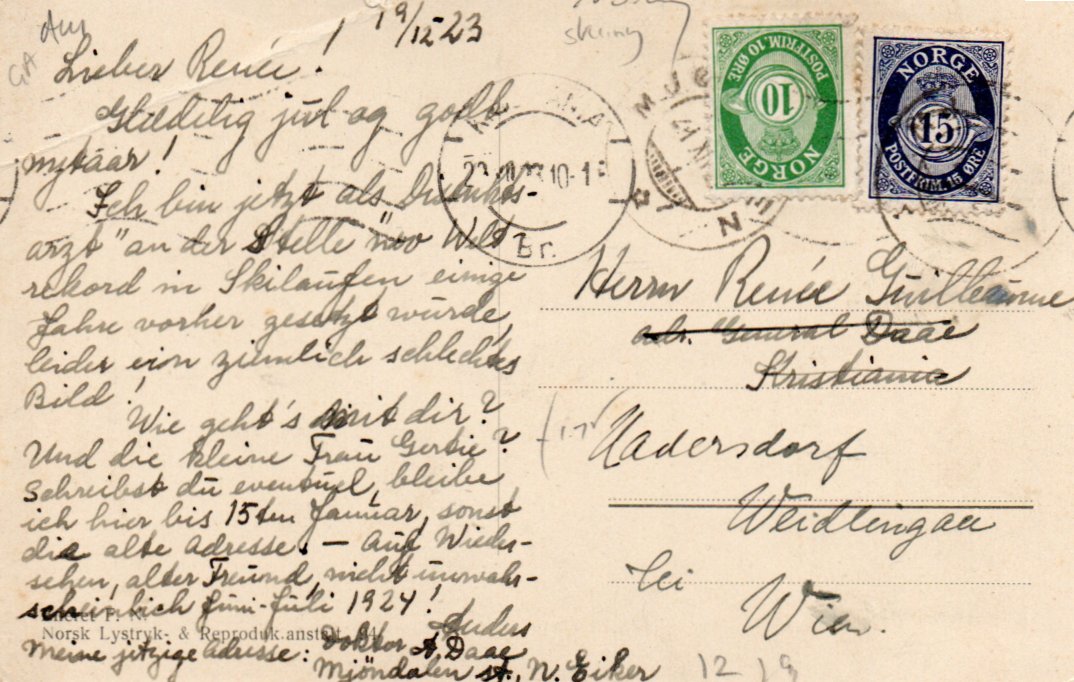 19/12 23
Lieber Renée!
Glædelig jul og godt
nytaar!
Ich bin jetzt als Distrikts-
arzt" an der Stelle wo Welt-
rekord in Skilaufen einige
Jahre vorher gesetzt wurde,
leider ein ziemlich schlechtes
Bild!
Wie geht's mit dir?
Und die kleine Frau Gertie?
Schreibst du eventuel, bleibe
ich hier bis 15ten Januar, sonst
die alte Adresse. — Auf Wieder-
sehen, alter Freund, nicht unwahr-
scheinlich Juni-Juli 1924!
Anders
Eneret P. N.
Norsk Lystryk- & Reproduk.anstalt
Meine jetzige Adresse: Doktor A. Daae
Mjöndalen st., N. Eiker
NORGE
POSTFRIM. 10 ØRE
10
NORGE
15
POSTFRIM. 15 ØRE
10-1
Br.
Herrn Renée Guillaume
adr. General Daae
Kristiania
Hadersdorf
Weidlingau
bei
Wien.
12